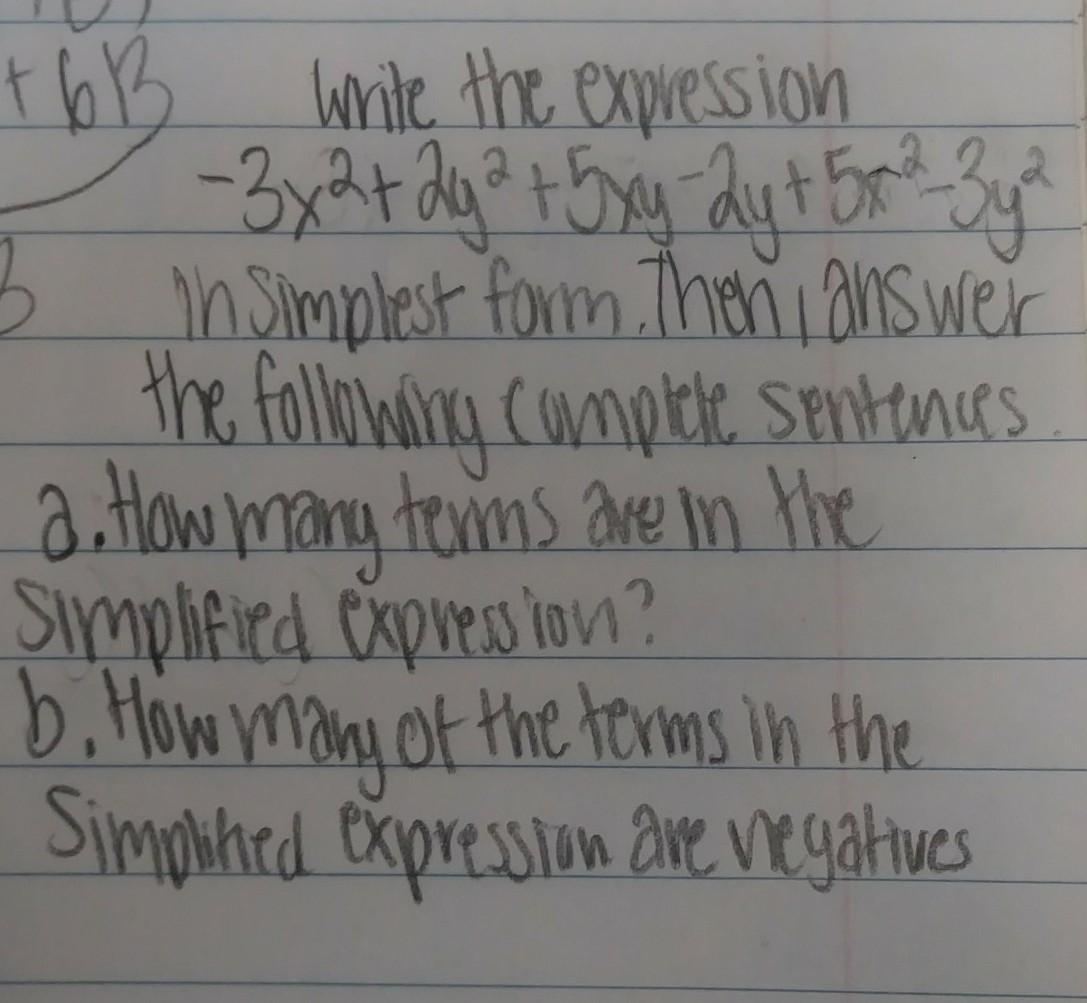 + 6B write the expression
-3x²+ 2y² +5xy -2y + 5x² -3y²
in simplest form. Then, answer
the following complete sentences.
a. How many terms are in the
simplified expression?
b. How many of the terms in the
Simplified expression are negatives